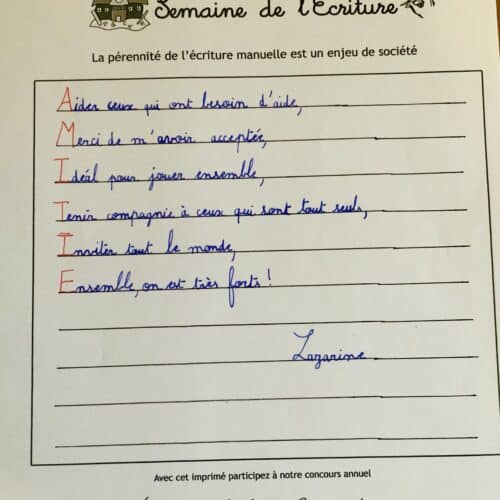 Semaine de l'Écriture
La pérennité de l'écriture manuelle est un enjeu de société
Aider ceux qui ont besoin d'aide,
Merci de m'avoir acceptée,
Idéal pour jouer ensemble,
Tenir compagnie à ceux qui sont tout seuls,
Inviter tout le monde,
Ensemble, on est très forts !
Lazarine
Avec cet imprimé participez à notre concours annuel